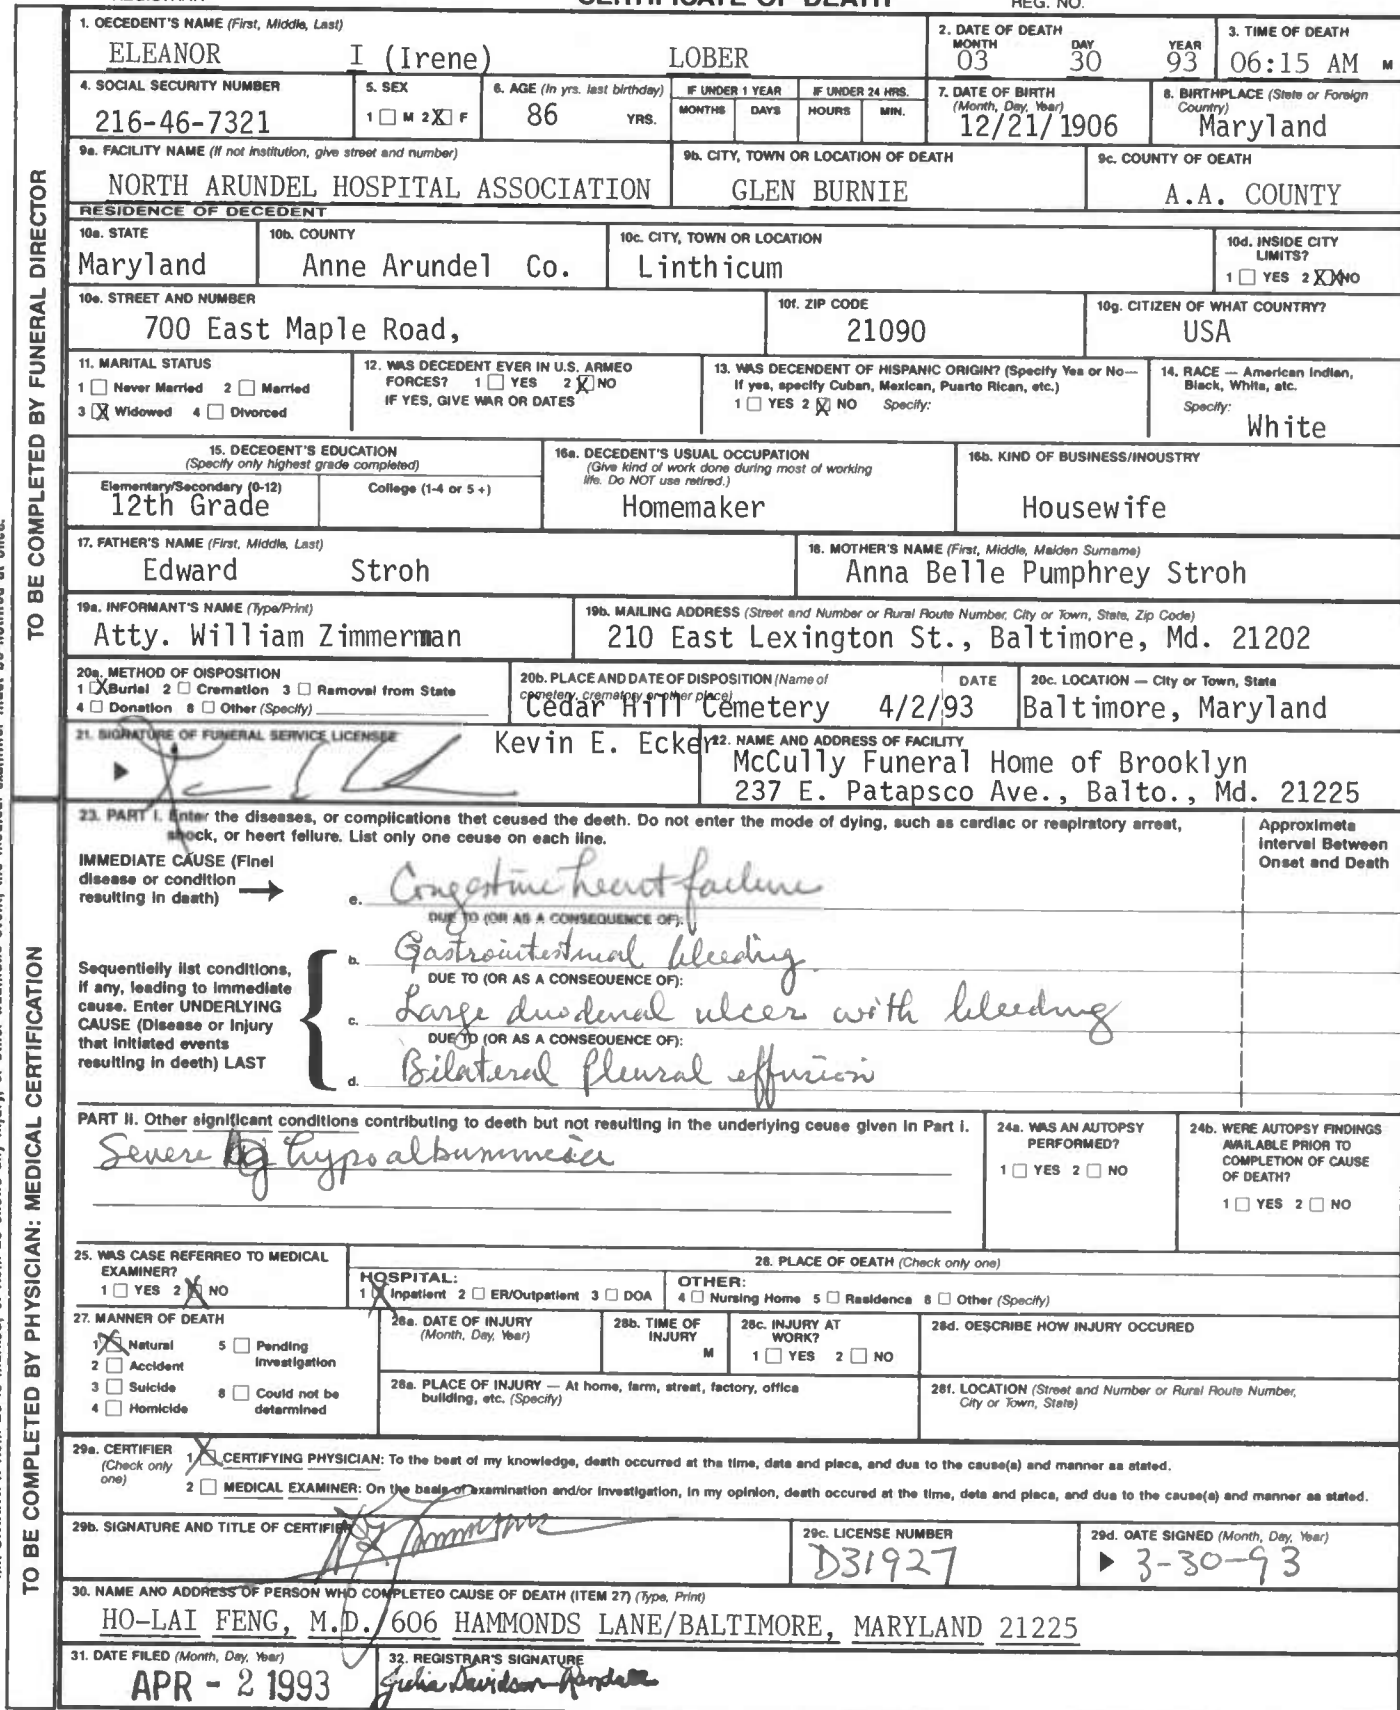 CERTIFICATE OF DEATH
REG. NO.
1. DECEDENT'S NAME (First, Middle, Last)
ELEANOR I (Irene) LOBER
2. DATE OF DEATH
MONTH DAY YEAR
03 30 93
3. TIME OF DEATH
06:15 AM M
4. SOCIAL SECURITY NUMBER
216-46-7321
5. SEX
1 ☐ M 2 ☒ F
6. AGE (In yrs. last birthday)
86 YRS.
IF UNDER 1 YEAR
MONTHS DAYS
IF UNDER 24 HRS.
HOURS MIN.
7. DATE OF BIRTH
(Month, Day, Year)
12/21/1906
8. BIRTHPLACE (State or Foreign
Country)
Maryland
9a. FACILITY NAME (If not institution, give street and number)
NORTH ARUNDEL HOSPITAL ASSOCIATION
9b. CITY, TOWN OR LOCATION OF DEATH
GLEN BURNIE
9c. COUNTY OF DEATH
A.A. COUNTY
RESIDENCE OF DECEDENT
10a. STATE
Maryland
10b. COUNTY
Anne Arundel Co.
10c. CITY, TOWN OR LOCATION
Linthicum
10d. INSIDE CITY
LIMITS?
1 ☐ YES 2 ☒ NO
10e. STREET AND NUMBER
700 East Maple Road,
10f. ZIP CODE
21090
10g. CITIZEN OF WHAT COUNTRY?
USA
11. MARITAL STATUS
1 ☐ Never Married 2 ☐ Married
3 ☒ Widowed 4 ☐ Divorced
12. WAS DECEDENT EVER IN U.S. ARMED
FORCES? 1 ☐ YES 2 ☒ NO
IF YES, GIVE WAR OR DATES
13. WAS DECENDENT OF HISPANIC ORIGIN? (Specify Yes or No—
If yes, specify Cuban, Mexican, Puerto Rican, etc.)
1 ☐ YES 2 ☒ NO Specify:
14. RACE — American Indian,
Black, White, etc.
Specify:
White
15. DECEDENT'S EDUCATION
(Specify only highest grade completed)
Elementary/Secondary (0-12) College (1-4 or 5+)
12th Grade
16a. DECEDENT'S USUAL OCCUPATION
(Give kind of work done during most of working
life. Do NOT use retired.)
Homemaker
16b. KIND OF BUSINESS/INDUSTRY
Housewife
17. FATHER'S NAME (First, Middle, Last)
Edward Stroh
18. MOTHER'S NAME (First, Middle, Maiden Surname)
Anna Belle Pumphrey Stroh
19a. INFORMANT'S NAME (Type/Print)
Atty. William Zimmerman
19b. MAILING ADDRESS (Street and Number or Rural Route Number, City or Town, State, Zip Code)
210 East Lexington St., Baltimore, Md. 21202
20a. METHOD OF DISPOSITION
1 ☒ Burial 2 ☐ Cremation 3 ☐ Removal from State
4 ☐ Donation 8 ☐ Other (Specify)
20b. PLACE AND DATE OF DISPOSITION (Name of
cemetery, crematory or other place) DATE
Cedar Hill Cemetery 4/2/93
20c. LOCATION — City or Town, State
Baltimore, Maryland
21. SIGNATURE OF FUNERAL SERVICE LICENSEE
Kevin E. Ecker
22. NAME AND ADDRESS OF FACILITY
McCully Funeral Home of Brooklyn
237 E. Patapsco Ave., Balto., Md. 21225
TO BE COMPLETED BY FUNERAL DIRECTOR
23. PART I. Enter the diseases, or complications that caused the death. Do not enter the mode of dying, such as cardiac or respiratory arrest,
shock, or heart failure. List only one cause on each line.
Approximate
Interval Between
Onset and Death
IMMEDIATE CAUSE (Final
disease or condition
resulting in death)
a. Congestive heart failure
DUE TO (OR AS A CONSEQUENCE OF):
b. Gastrointestinal bleeding
DUE TO (OR AS A CONSEQUENCE OF):
Sequentially list conditions,
if any, leading to immediate
cause. Enter UNDERLYING
CAUSE (Disease or injury
that initiated events
resulting in death) LAST
c. Large duodenal ulcer with bleeding
DUE TO (OR AS A CONSEQUENCE OF):
d. Bilateral Pleural effusion
PART II. Other significant conditions contributing to death but not resulting in the underlying cause given in Part I.
Severe hypoalbuminemia
24a. WAS AN AUTOPSY
PERFORMED?
1 ☐ YES 2 ☐ NO
24b. WERE AUTOPSY FINDINGS
AVAILABLE PRIOR TO
COMPLETION OF CAUSE
OF DEATH?
1 ☐ YES 2 ☐ NO
25. WAS CASE REFERRED TO MEDICAL
EXAMINER?
1 ☐ YES 2 ☒ NO
26. PLACE OF DEATH (Check only one)
HOSPITAL:
1 ☒ Inpatient 2 ☐ ER/Outpatient 3 ☐ DOA
OTHER:
4 ☐ Nursing Home 5 ☐ Residence 6 ☐ Other (Specify)
27. MANNER OF DEATH
1 ☒ Natural 5 ☐ Pending
Investigation
2 ☐ Accident
3 ☐ Suicide 8 ☐ Could not be
determined
4 ☐ Homicide
28a. DATE OF INJURY
(Month, Day, Year)
28b. TIME OF
INJURY
M
28c. INJURY AT
WORK?
1 ☐ YES 2 ☐ NO
28d. DESCRIBE HOW INJURY OCCURED
28e. PLACE OF INJURY — At home, farm, street, factory, office
building, etc. (Specify)
28f. LOCATION (Street and Number or Rural Route Number,
City or Town, State)
29a. CERTIFIER
(Check only
one)
1 ☒ CERTIFYING PHYSICIAN: To the best of my knowledge, death occurred at the time, date and place, and due to the cause(s) and manner as stated.
2 ☐ MEDICAL EXAMINER: On the basis of examination and/or investigation, in my opinion, death occured at the time, date and place, and due to the cause(s) and manner as stated.
29b. SIGNATURE AND TITLE OF CERTIFIER
29c. LICENSE NUMBER
D31927
29d. DATE SIGNED (Month, Day, Year)
3-30-93
30. NAME AND ADDRESS OF PERSON WHO COMPLETED CAUSE OF DEATH (ITEM 27) (Type, Print)
HO-LAI FENG, M.D./606 HAMMONDS LANE/BALTIMORE, MARYLAND 21225
31. DATE FILED (Month, Day, Year)
APR - 2 1993
32. REGISTRAR'S SIGNATURE
Julia Davidson-Randall
TO BE COMPLETED BY PHYSICIAN: MEDICAL CERTIFICATION